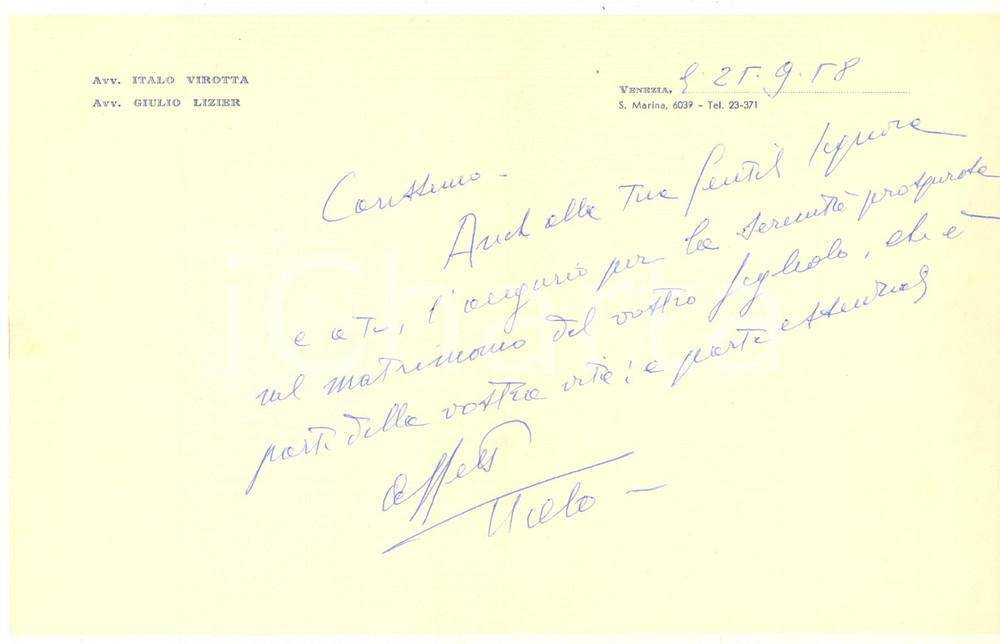 Avv. ITALO VIROTTA
Avv. GIULIO LIZIER
VENEZIA, 25.9.58
S. Marina, 6039 - Tel. 23-371
Carissimo -
Anch alla tua gentil Signora
e a te, l'augurio per la serenità prosperosa
nel matrimonio del vostro figliolo, che è
parte della vostra vita: e parte essenzial
affett
Italo -
iCharta